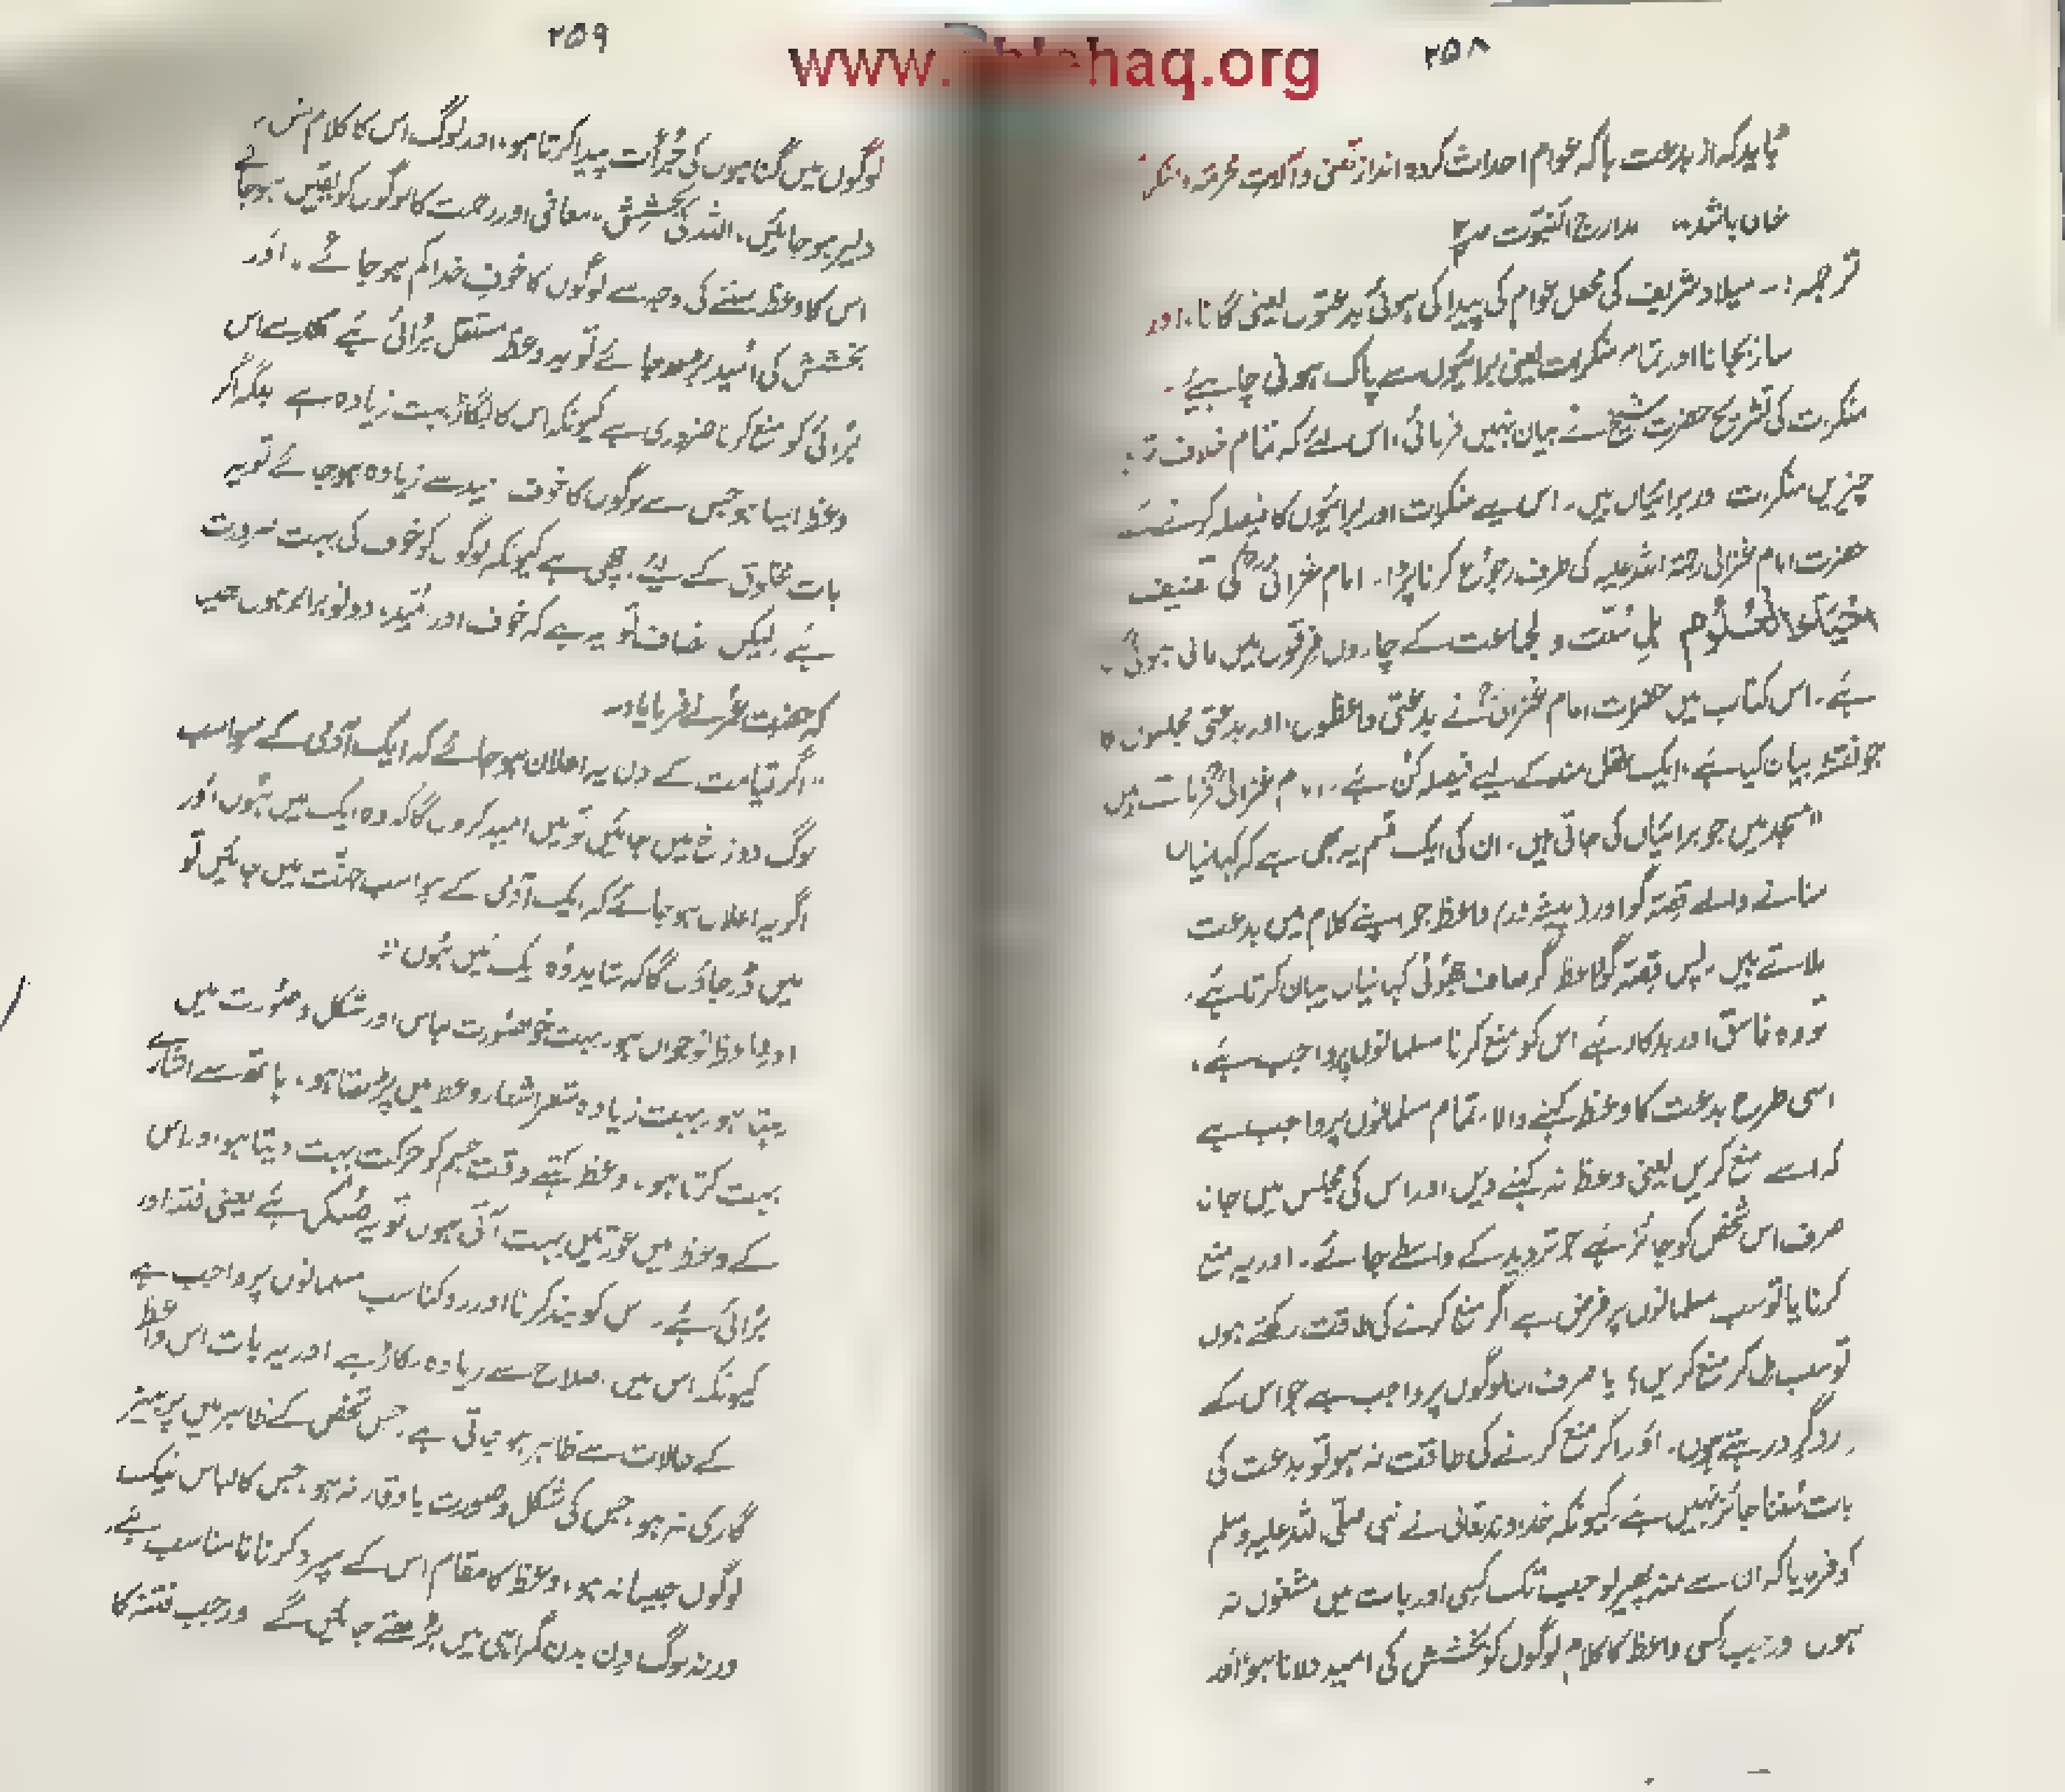 ۲۵۸
باید کہ از بدعت ہا کہ عوام احداث کردہ انداز تغنی و آلات محرمہ و منکر
خالی باشد مدارج النبوت
ترجمہ :۔ میلاد شریف کی محفل عوام کی پیدا کی ہوئی بدعتوں یعنی گانا، اور
ساز بجانا اور تمام منکرات یعنی برائیوں سے پاک ہونی چاہیئے۔
منکرات کی تشریح حضرت شیخ نے بیان نہیں فرمائی، اس لئے کہ تمام خلاف
چیزیں منکرات اور برائیاں ہیں۔ اس لیے منکرات اور برائیوں کا فیصلہ کرنے
حضرت امام غزالی رحمۃ اللہ علیہ کی طرف رجوع کرنا پڑا۔ امام غزالیؒ کی تصنیف
احیاء العلوم اہل سنت و الجماعت کے چاروں فرقوں میں مانی ہوئی
ہے۔ اس کتاب میں حضرات امام غزالیؒ نے بدعتی واعظوں، اور بدعتی مجلسوں کا
جو نقشہ بیان کیا ہے، ایک عقل مند کے لیے فیصلہ کن ہے۔ امام غزالیؒ فرماتے ہیں
"مسجد میں جو برائیاں کی جاتی ہیں، ان کی ایک قسم یہ بھی ہے کہ کہانیاں
سنانے والے قصہ گو اور (پیشہ ور) واعظ جو اپنے کلام میں بدعت
ملاتے ہیں۔ پس قصہ گو واعظ گر صاف جھوٹی کہانیاں بیان کرتا ہے،
تو وہ فاسق اور بدکار ہے اس کو منع کرنا مسلمانوں پر واجب ہے،
اسی طرح بدعت کا وعظ کہنے والا، تمام مسلمانوں پر واجب ہے
کہ اسے منع کریں یعنی وعظ نہ کہنے دیں اور اس کی مجلس میں جانا
صرف اس شخص کو جائز ہے جو تردید کے واسطے جائے۔ اور یہ منع
کرنا یا تو سب مسلمانوں پر فرض ہے اگر منع کرنے کی طاقت رکھتے ہوں
تو سب مل کر منع کریں؛ یا صرف ان لوگوں پر واجب ہے جو اس کے
اردگرد رہتے ہوں۔ اور اگر منع کرنے کی طاقت نہ ہو تو بدعت کی
بات سُننا جائز نہیں ہے کیونکہ خداوند تعالیٰ نے نبی صلی اللہ علیہ وسلم
کو فرمایا کہ ان سے منہ پھیر لو جب تک کسی اور بات میں مشغول نہ
ہوں اور جب کسی واعظ کا کلام لوگوں کو بخشش کی امید دلاتا ہو اور
۲۵۹
لوگوں میں گناہوں کی جُرأت پیدا کرتا ہو، اور لوگ اس کا کلام سن
دلیر ہو جائیں، اللہ کی بخشش، معافی اور رحمت کا لوگوں کو یقین ہو جائے
اس کا وعظ سننے کی وجہ سے لوگوں کا خوفِ خدا کم ہو جائے، اور
بخشش کی اُمید بڑھ جائے تو یہ وعظ مستقل بُرائی ہے اس
بُرائی کو منع کرنا ضروری ہے کیونکہ اس کا بگاڑ بہت زیادہ ہے بلکہ اگر
وعظ ایسا ہو جس سے لوگوں کا خوف امید سے زیادہ ہو جائے تو یہ
بات مخلوق کے لیے اچھی ہے کیونکہ لوگوں کو خوف کی بہت ضرورت
ہے، لیکن انصاف تو یہ ہے کہ خوف اور اُمید، دونو برابر ہوں جیسے
کہ حضرت عمرؓ نے فرمایا:۔
"اگر قیامت کے دن یہ اعلان ہو جائے کہ ایک آدمی کے سوا سب
لوگ دوزخ میں جائیں تو میں امید کروں گا کہ وہ ایک میں ہوں اور
اگر یہ اعلان ہو جائے کہ ایک آدمی کے سوا سب جنت میں جائیں تو
میں ڈر جاؤں گا کہ شاید وہ ایک میں ہوں"
اور واعظ نوجوان ہو، بہت خوبصورت لباس اور شکل و صورت میں
رہتا ہو، بہت زیادہ شعر اشعار وعظ میں پڑھتا ہو، ہاتھ سے اشارے
بہت کرتا ہو۔ وعظ کہتے وقت جسم کو حرکت بہت دیتا ہو، اور اس
کے وعظ میں عورتیں بہت آتی ہوں تو یہ منکر ہے یعنی فتنہ اور
بُرائی ہے۔ اس کو بند کرنا اور روکنا سب مسلمانوں پر واجب ہے
کیونکہ اس میں اصلاح سے زیادہ بگاڑ ہے اور یہ بات اس واعظ
کے حالات سے ظاہر ہو جاتی ہے۔ جس شخص کے ظاہر میں پرہیز
گاری نہ ہو، جس کی شکل و صورت باوقار نہ ہو، جس کا لباس نیک
لوگوں جیسا نہ ہو، وعظ کا مقام اس کے سپرد کرنا نامناسب ہے،
ورنہ لوگ دن بدن گمراہی میں بڑھتے جائیں گے اور جب فتنہ کا